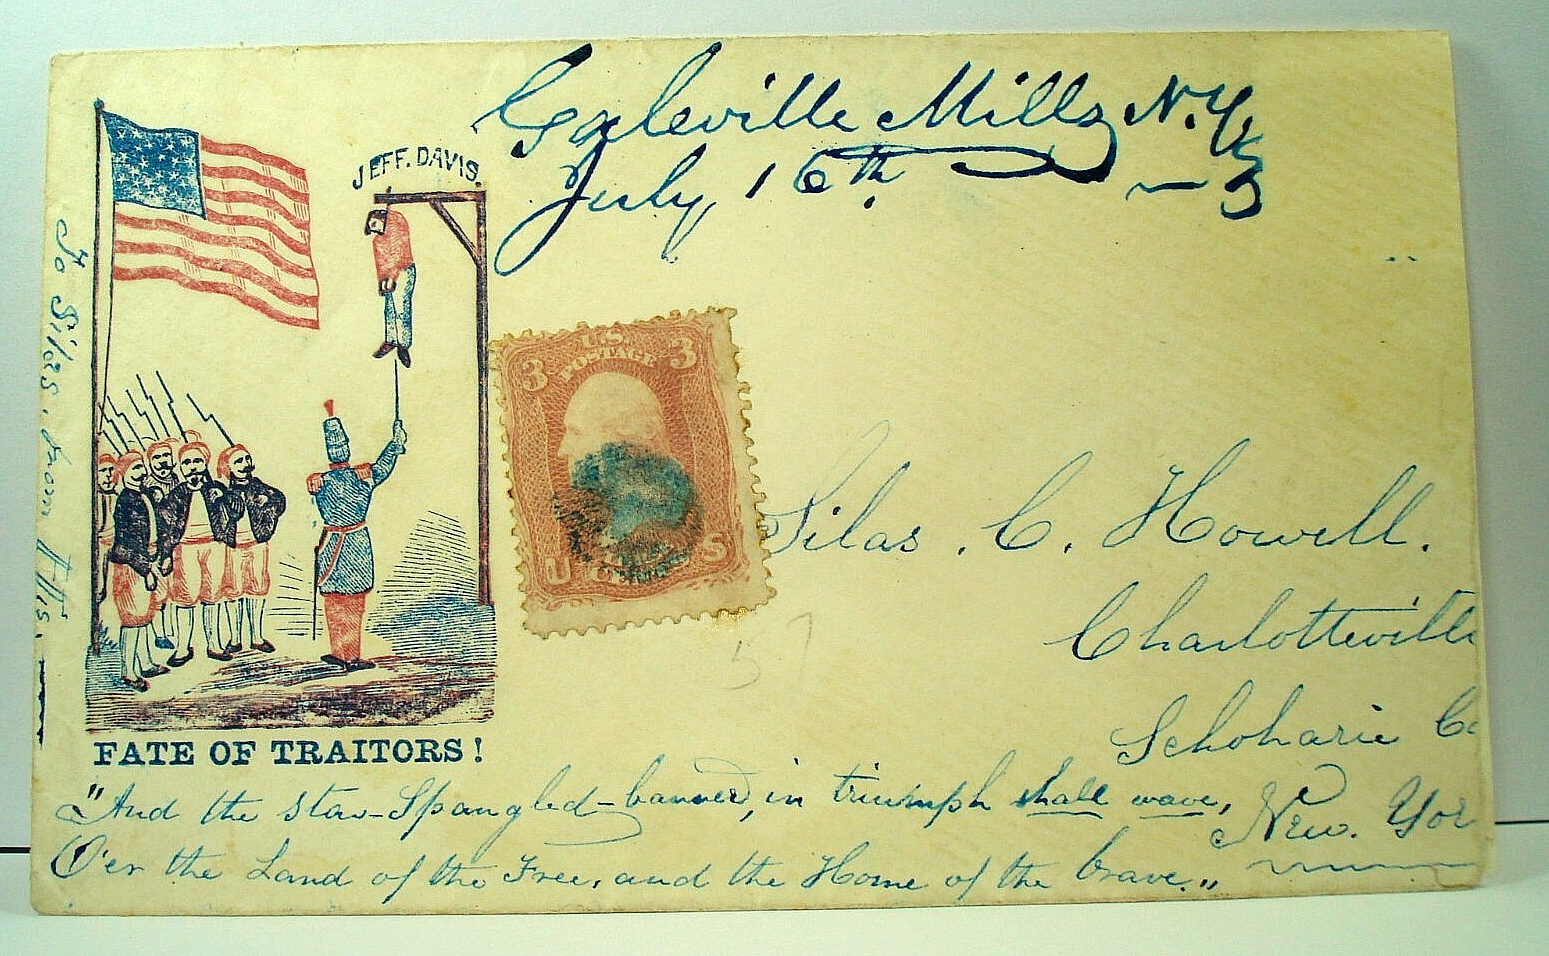 Galeville Mills N.Y.
July 16th.
JEFF. DAVIS.
To Silas, from
U.S.
POSTAGE
3 3
U S
Silas . C. Howell.
Charlotteville
Schoharie Co
New. Yor
57
FATE OF TRAITORS!
"And the star-Spangled-banner, in triumph shall wave,
O'er the Land of the Free, and the Home of the brave."